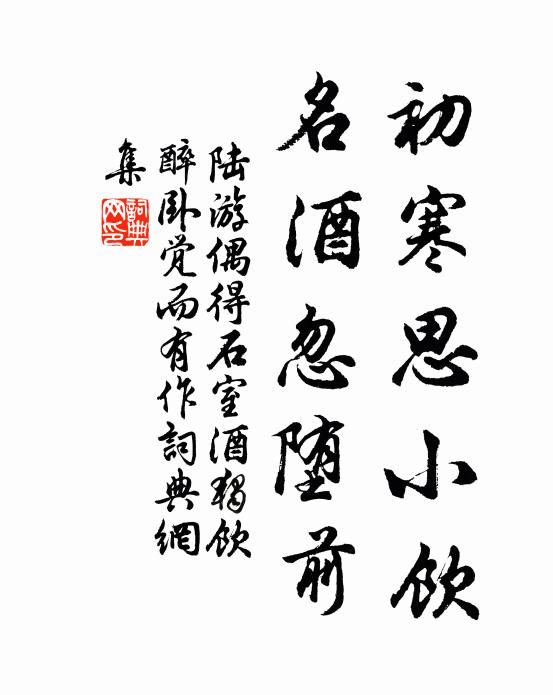 初寒思小飲
名酒忽堕前
陆游偶得石室酒獨飲
醉卧觉而有作詞典網
集
詞典網印